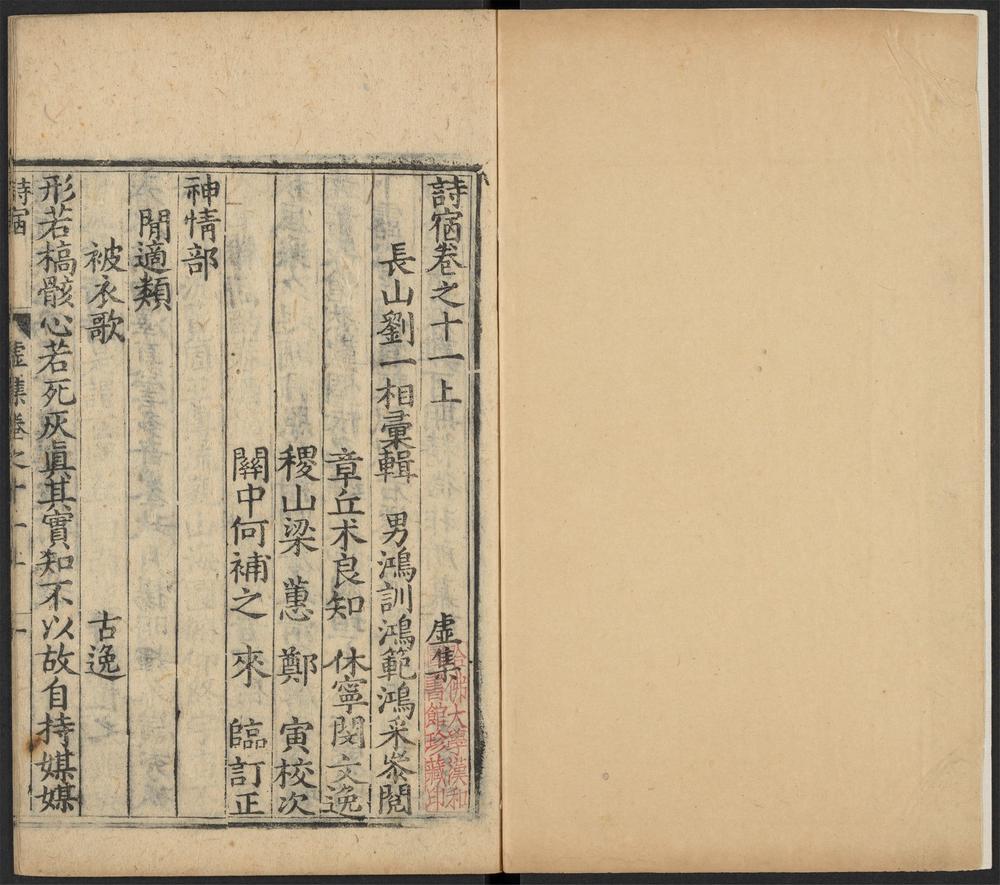 詩宿卷之十一上 虛集
長山劉一相彙輯 男鴻訓鴻範鴻采叅閱
章丘术良知 休寧閔文逸
稷山梁 蕙 鄭 寅校次
關中何補之 來 臨訂正
神情部
閒適類
被衣歌 古逸
形若槁骸心若死灰眞其實知不以故自持媒媒
詩宿 虛集卷之十一上 一
哈佛大學漢和
圖書館珍藏印